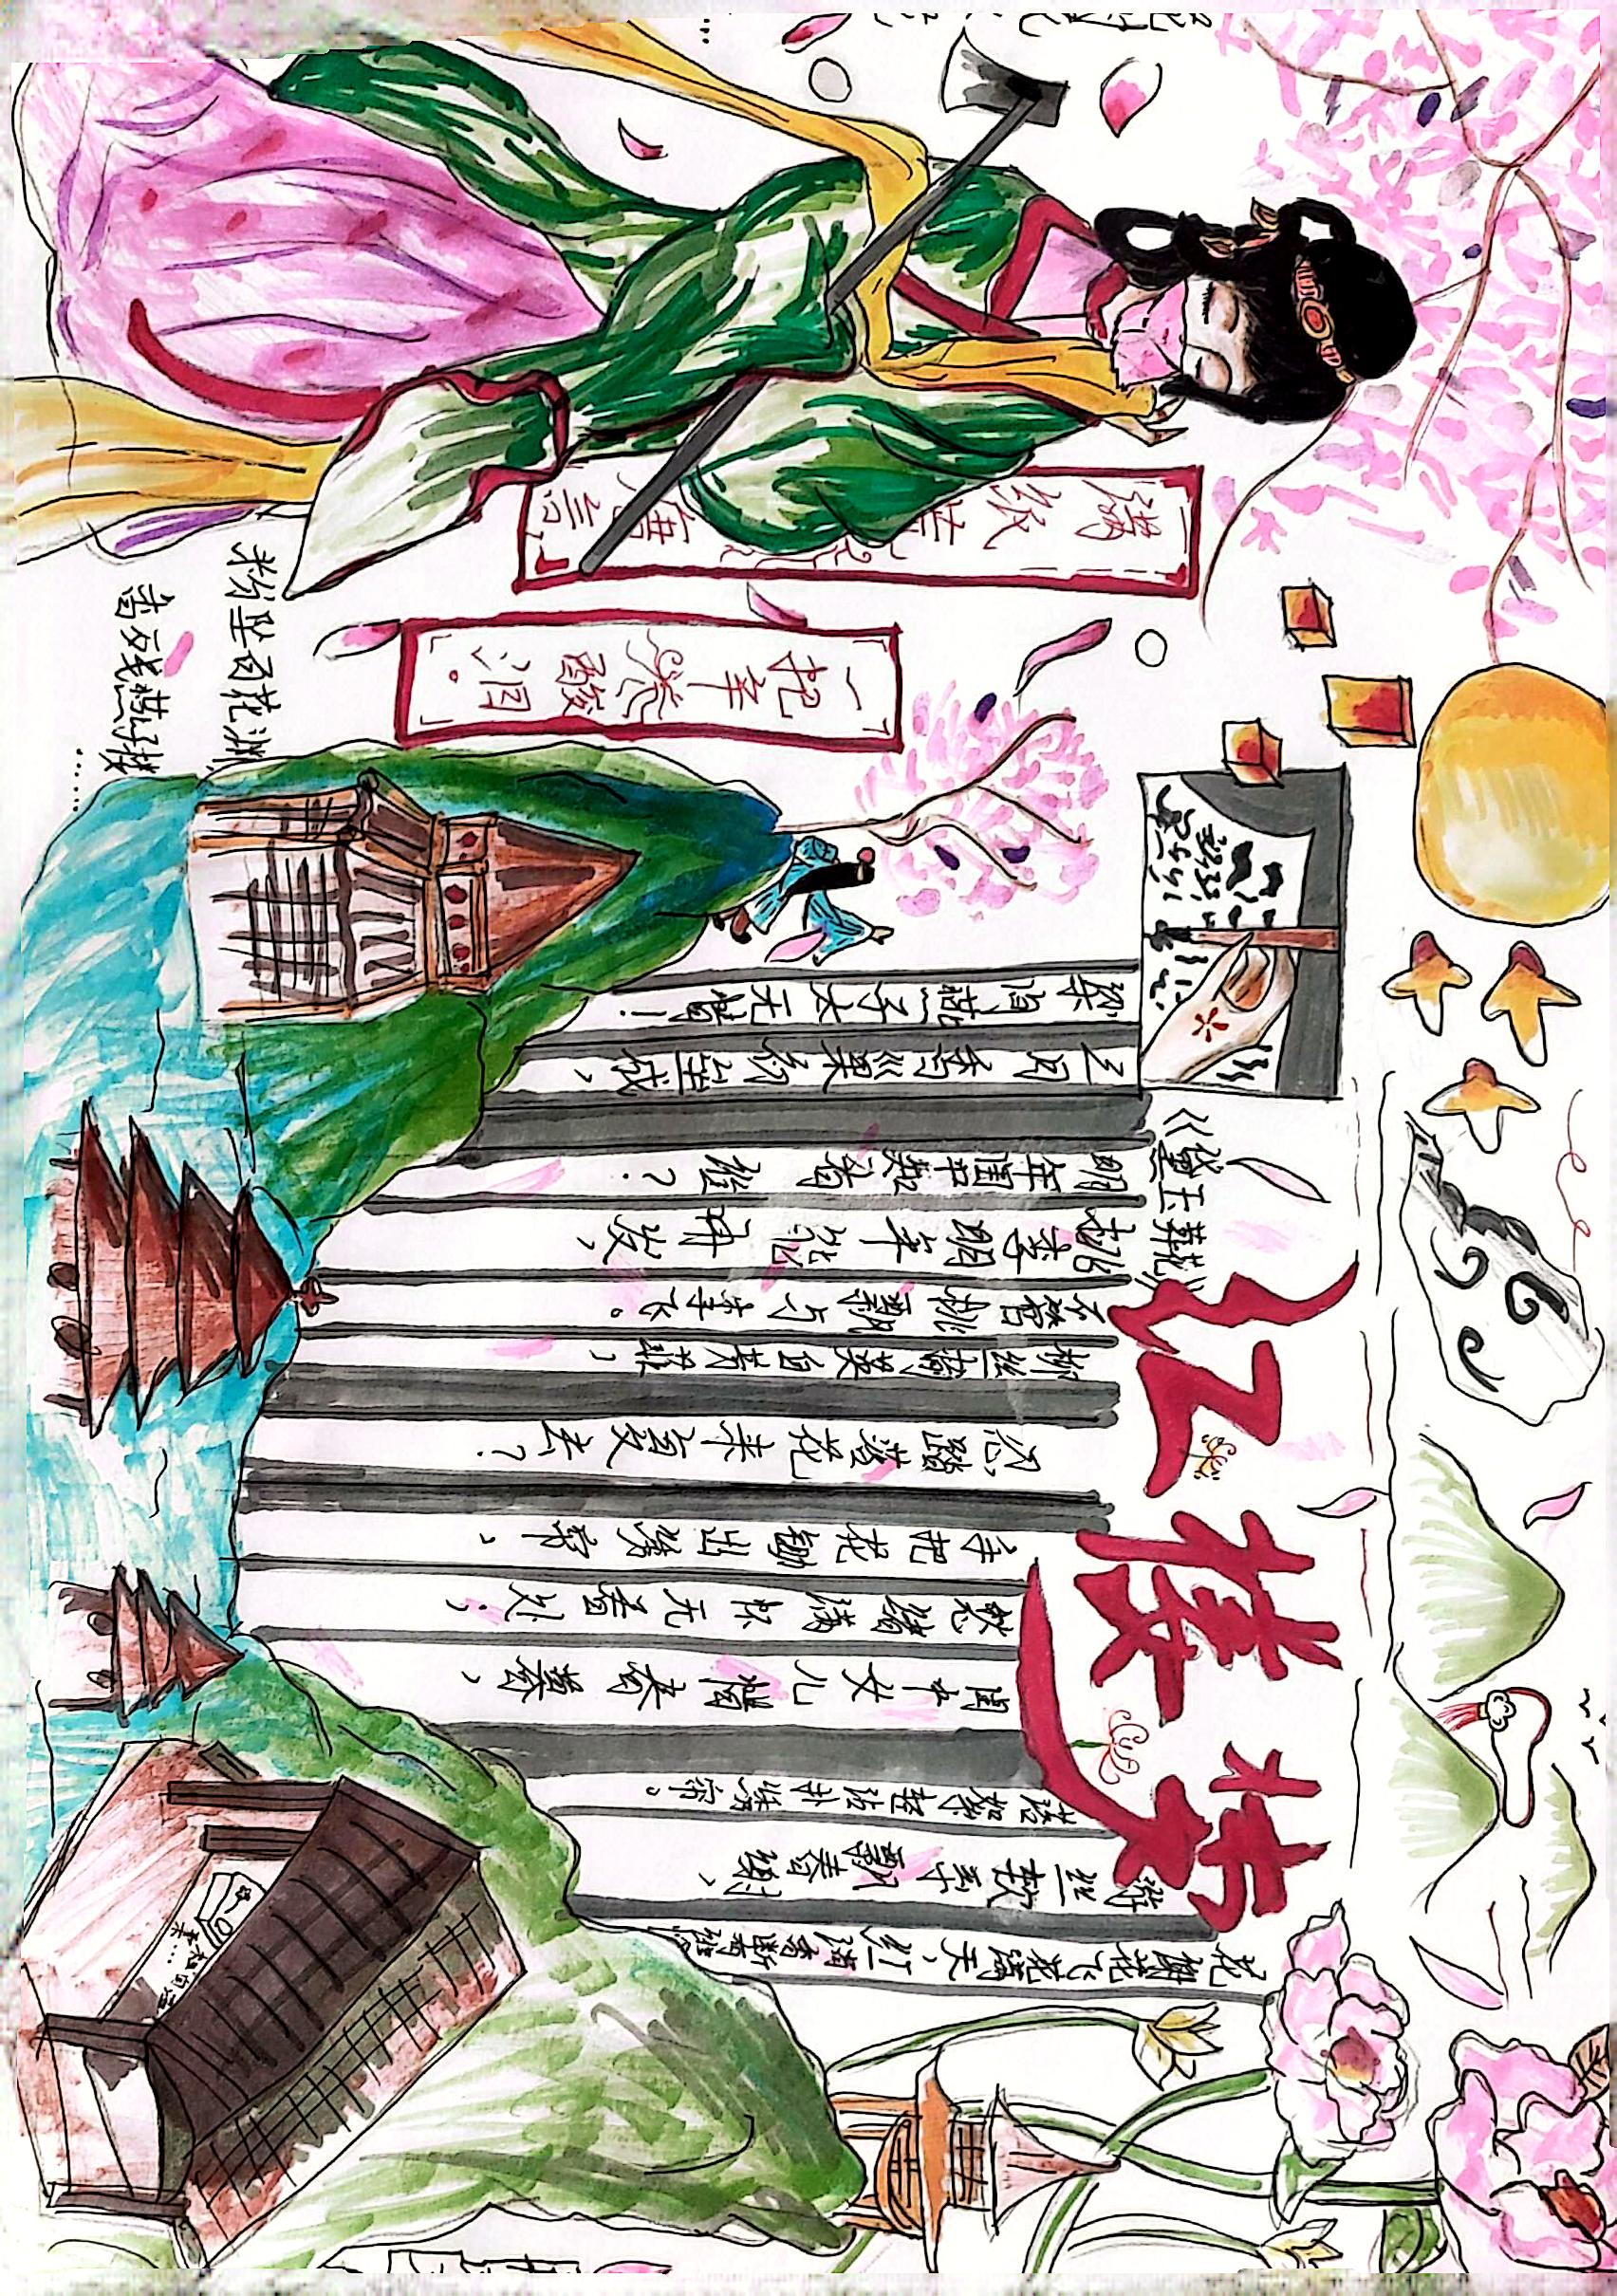 红楼梦
《黛玉葬花》
花谢花飞花满天，红消香断有谁
游丝软系飘春榭，
落絮轻沾扑绣帘。
闺中女儿惜春暮，
愁绪满怀无着处；
手把花锄出绣帘，
忍踏落花来复去？
柳丝榆荚自芳菲，
不管桃飘与李飞。
桃李明年能再发，
明年闺中知有谁？
三月香巢初垒成，
梁间燕子太无情！
满纸荒唐言，
一把辛酸泪。
粉坠百花洲，
香残燕子楼
......